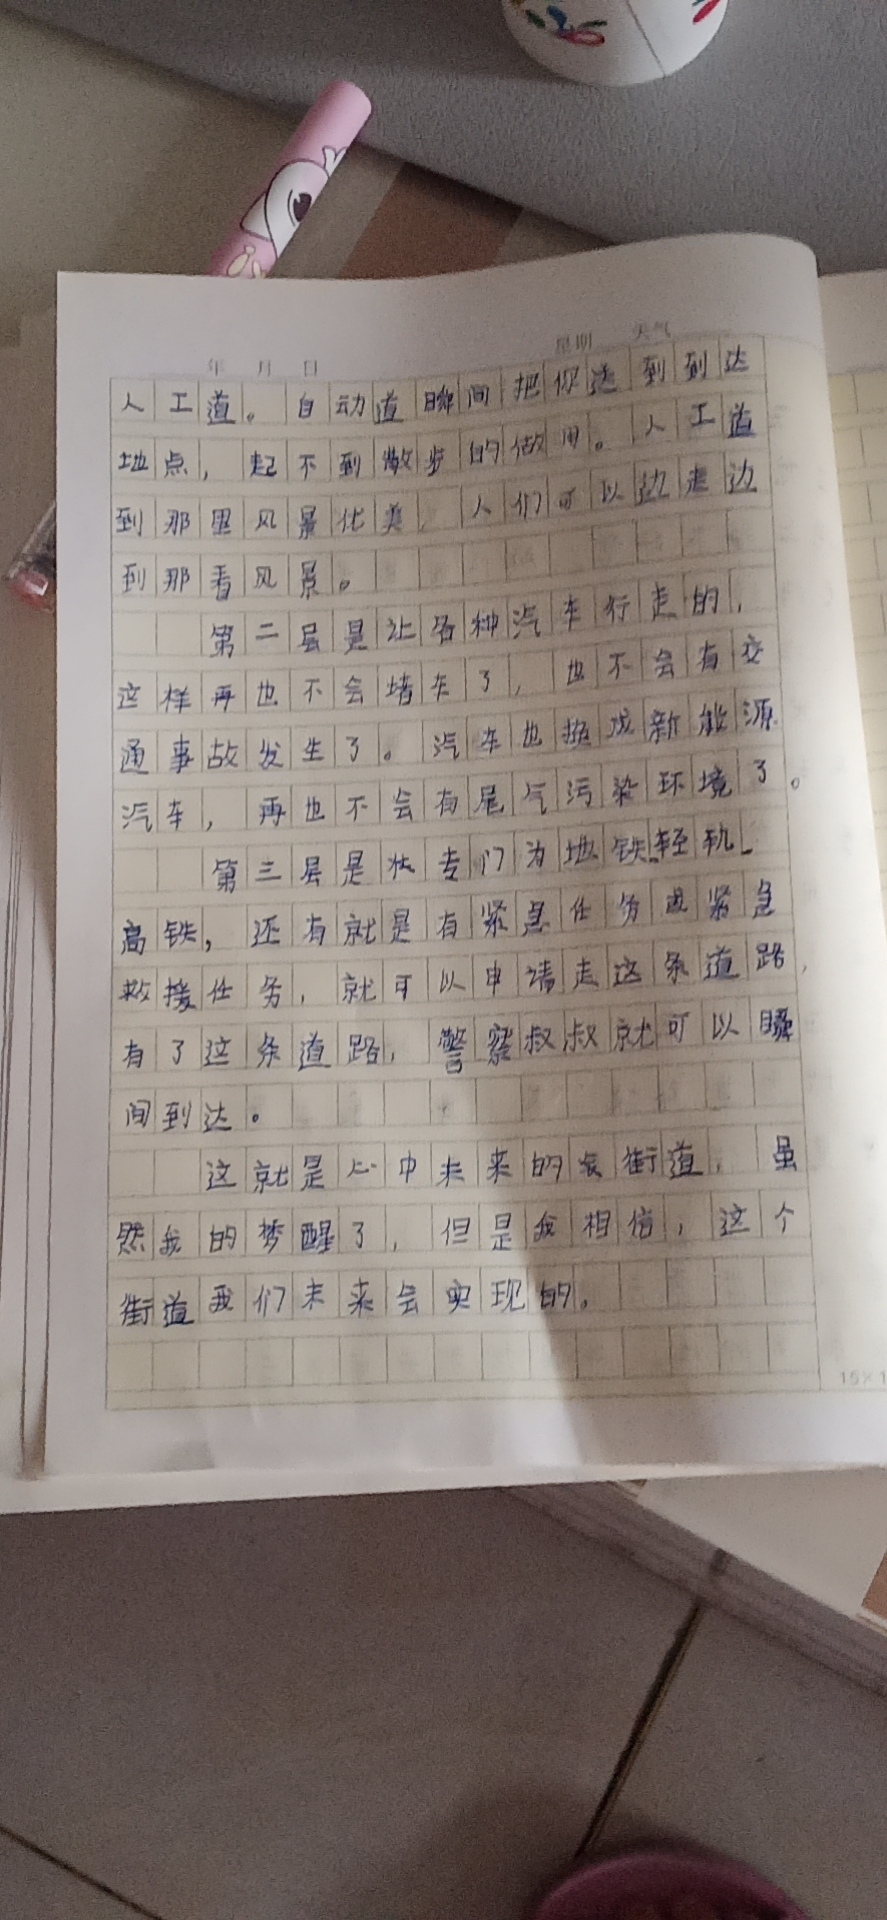 年 月 日 星期 天气
人工道。自动道瞬间把你送到到达
地点，起不到散步的做用。人工道
到那里风景优美，人们可以边走边
到那看风景。
第二层是让各种汽车行走的，
这样再也不会堵车了，也不会有交
通事故发生了。汽车也换成新能源
汽车，再也不会有尾气污染环境了。
第三层是专门为地铁、轻轨、
高铁，还有就是有紧急任务或紧急
救援任务，就可以申请走这条道路，
有了这条道路，警察叔叔就可以瞬
间到达。
这就是心中未来的街道，虽
然我的梦醒了，但是我相信，这个
街道我们未来会实现的。